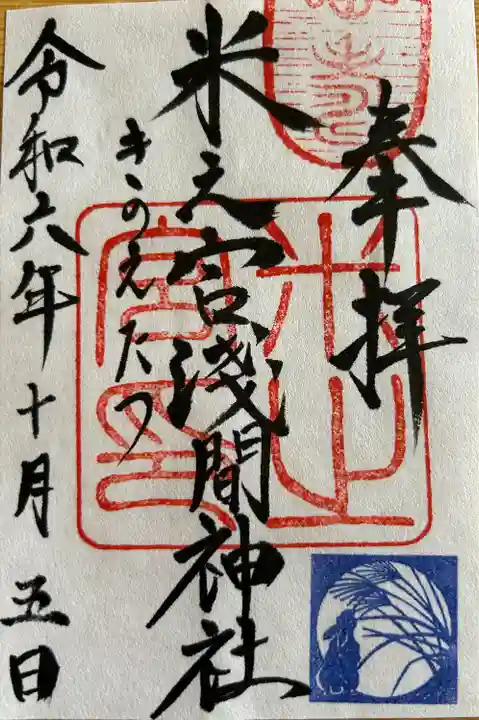 奉拝
米之宮浅間神社
きのえたつ
令和六年十月五日